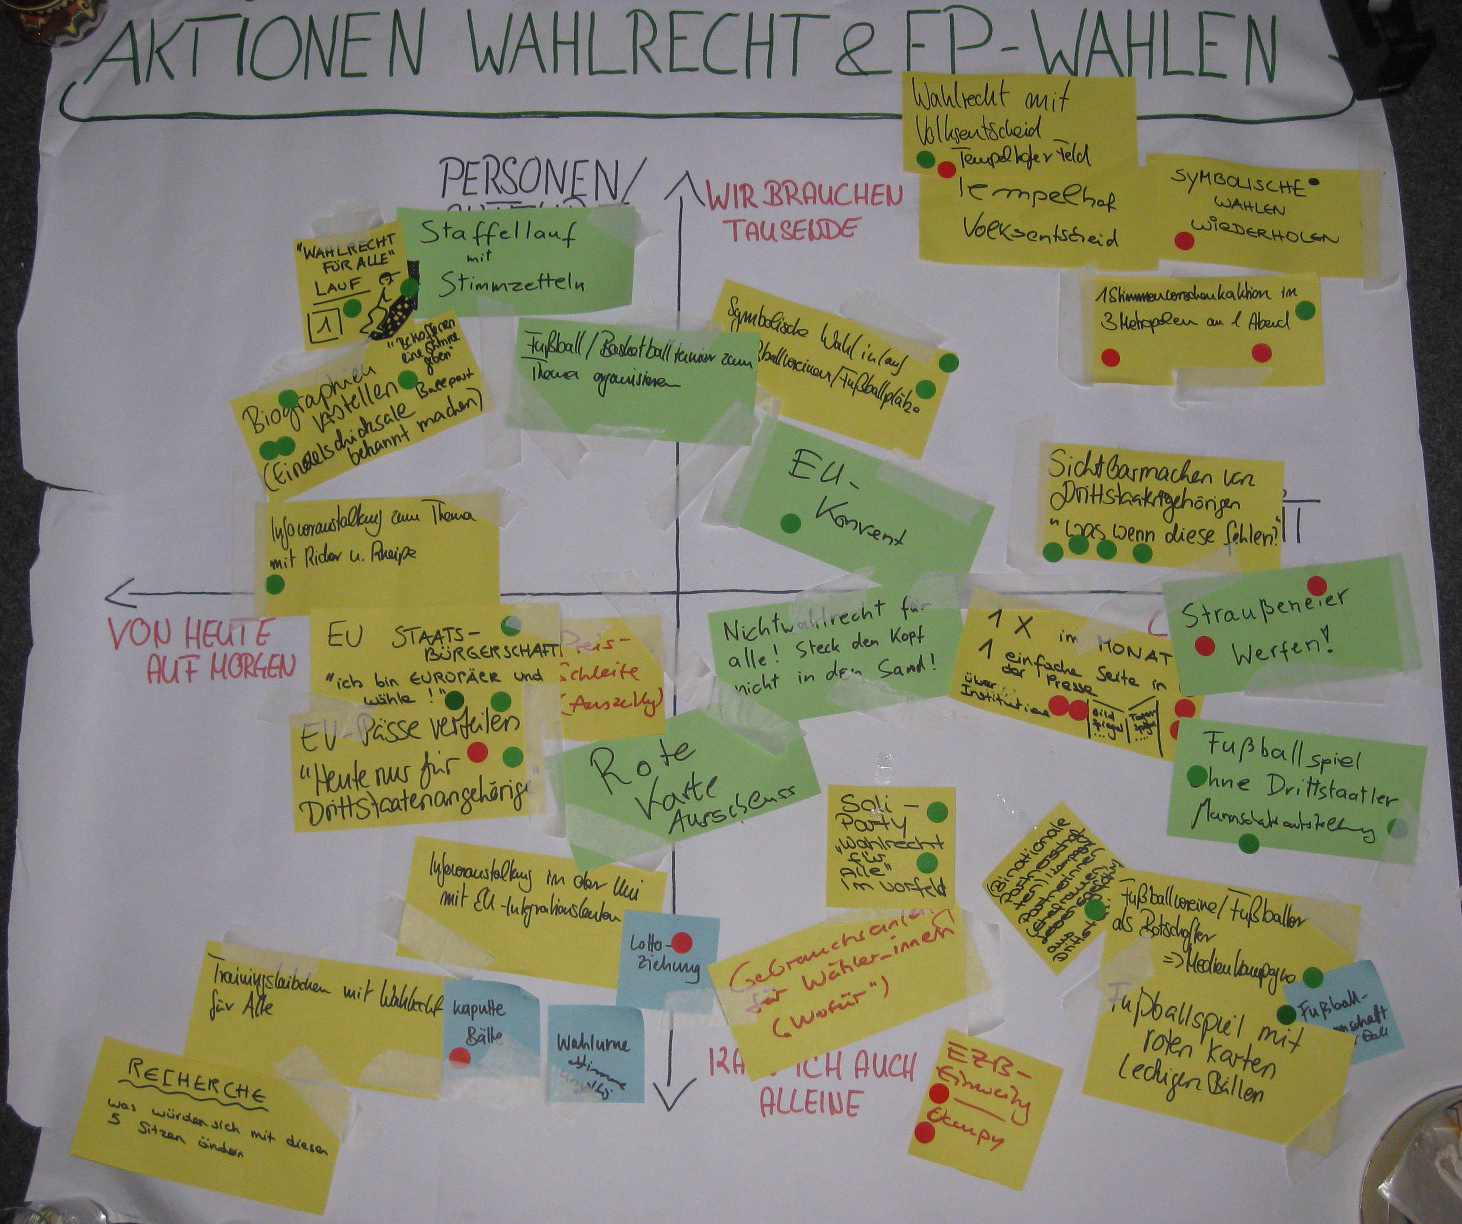 AKTIONEN WAHLRECHT & EP-WAHLEN
PERSONEN/
WIR BRAUCHEN
TAUSENDE
Wahlrecht mit
Volksentscheid
Tempelhofer Feld
Tempelhof
Volksentscheid
SYMBOLISCHE
WAHLEN
WIEDERHOLEN
"WAHLRECHT
FÜR ALLE"
LAUF
1
Staffellauf
mit
Stimmzetteln
1 Stimmenverschenkaktion in
3 Metropolen an 1 Abend
Fußball/Basketballturnier zum
Thema organisieren
Symbolische Wahl in/auf
Fußballplätze
Biographien
(Einzelschicksale
bekannt machen)
EU-
Konvent
Sichtbarmachen von
Drittstaatsangehörigen
"was wenn diese fehlen?"
Infoveranstaltung zum Thema
mit
VON HEUTE
AUF MORGEN
EU STAATS-
BÜRGERSCHAFT
"ich bin EUROPÄER und
wähle!"
Preis-
Schleife
EU-Pässe verteilen
"Heute nur für
Drittstaatenangehörige
Nichtwahlrecht für
alle! Steck den Kopf
nicht in den Sand!
1 X im MONAT
1 einfache Seite in
der Presse
über
Institutionen
Bild
Spiegel
Straußeneier
Werfen!
Rote
Karte
Fußballspiel
ohne Drittstaatler
Mannschaftsaufstellung
Soli-
Party
"Wahlrecht
für
Alle"
im Vorfeld
Binationale
Partnerschaf-
ten
Partnerinnen
Fußballvereine/Fußballer
als Botschafter
=> Medienkampagne
Fußballspiel mit
roten Karten
Bällen
Fußball-
Infoveranstaltung in der Uni
mit EU-
Lotto-
ziehung
Gebrauchsanlei
für Wähler_innen
("Wofür")
Trainingsleibchen mit Wahlrecht
für Alle
kaputte
Bälle
Wahlurne
KA ICH AUCH
ALLEINE
EZB-
Einweihg
Occupy
RECHERCHE
was würden sich mit diesen
5 Sitzen ändern